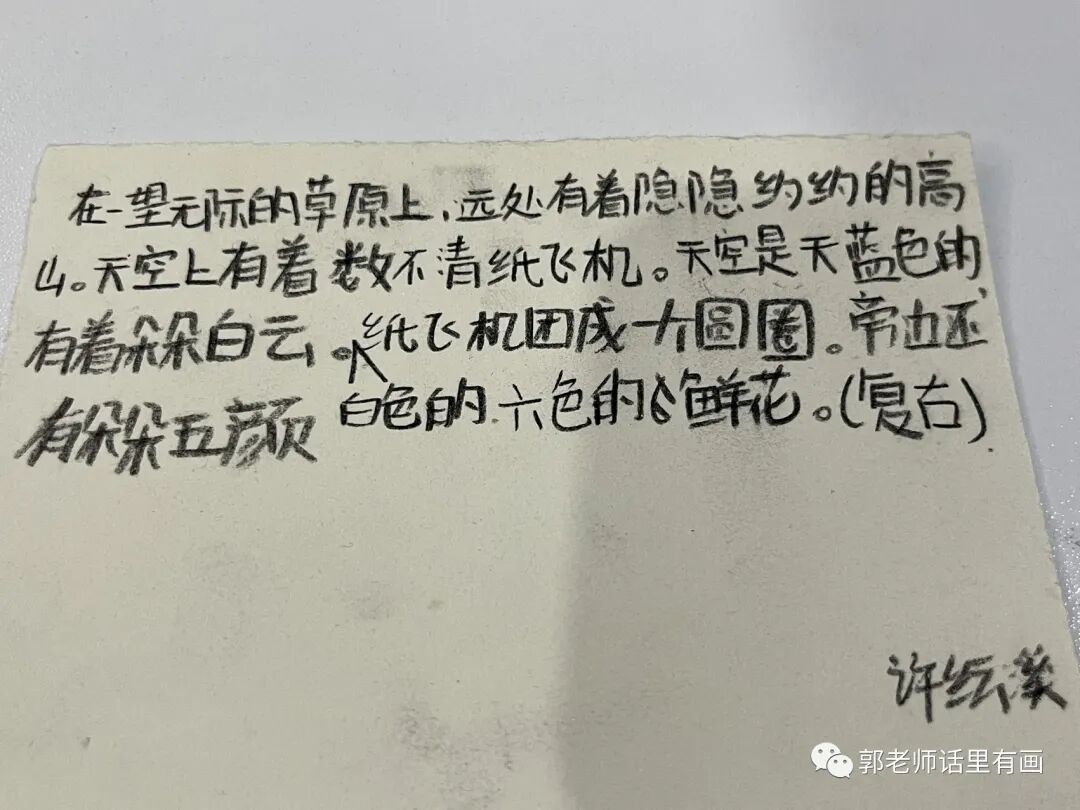 在一望无际的草原上,远处有着隐隐约约的高
山。天空上有着数不清纸飞机。天空是天蓝色的
有着朵朵白云。纸飞机团成一个圆圈。旁边还
白色的
有朵朵五颜六色的鲜花。(复古)
许纭溪
郭老师话里有画